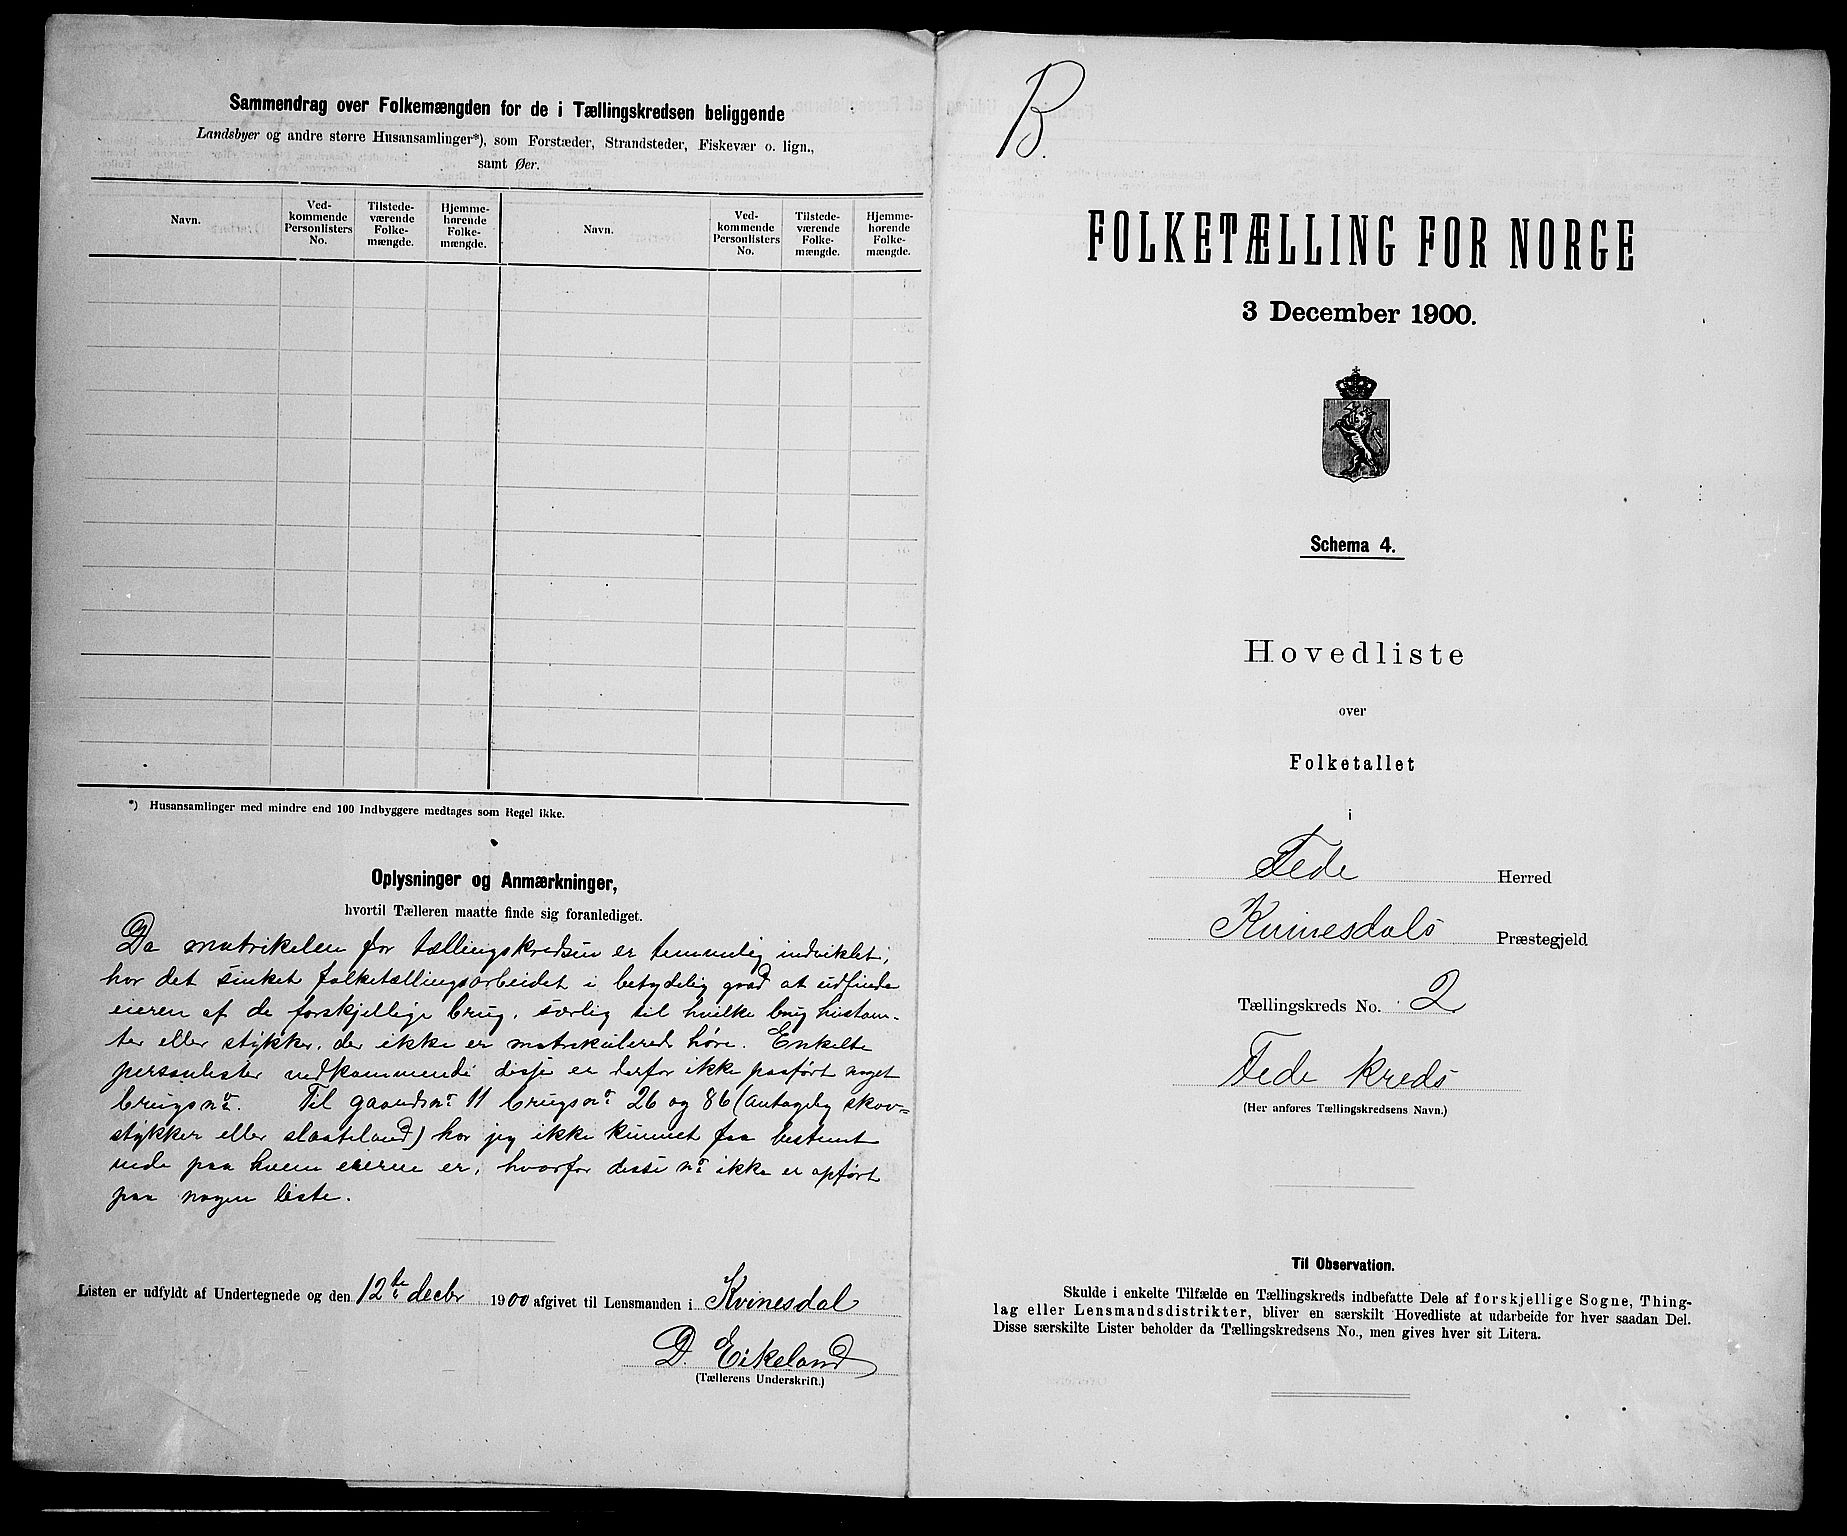 Sammendrag over Folkemængden for de i Tællingskredsen beliggende
Landsbyer og andre større Husansamlinger*), som Forstæder, Strandsteder, Fiskevær o. lign.,
samt Øer.
Navn.
Ved-
kommende
Personlisters
No.
Tilstede-
værende
Folke-
mængde.
Hjemme-
hørende
Folke-
mængde.
Navn.
Ved-
kommende
Personlisters
No.
Tilstede-
værende
Folke-
mængde.
Hjemme-
hørende
Folke-
mængde.
*) Husansamlinger med mindre end 100 Indbyggere medtages som Regel ikke.
Oplysninger og Anmærkninger,
hvortil Tælleren maatte finde sig foranlediget.
Da matrikelen for tællingskredsen er temmelig indviklet,
har det sinket folketællingsarbeidet i betydelig grad at udfinde
eieren af de forskjellige brug, særlig til hvilke brug hustom-
ter eller stykker, der ikke er matrikulered høre. Enkelte
personlister vedkommende disse er derfor ikke paaført noget
brugsnr. Til gaardsnr 11 brugsnr 26 og 86 (antagelig skov-
stykker eller slaateland) har jeg ikke kunnet faa bestemt
rede paa hvem eieren er, hvorfor disse nr ikke er opført
paa nogen liste.
Listen er udfyldt af Undertegnede og den 12te decbr 1900 afgivet til Lensmanden i Kvinesdal
D. Eikeland
(Tællerens Underskrift.)
B.
FOLKETÆLLING FOR NORGE
3 December 1900.
Schema 4.
Hovedliste
over
Folketallet
i
Fede Herred
Kvinesdals Præstegjeld
Tællingskreds No. 2
Fede kreds
(Her anføres Tællingskredsens Navn.)
Til Observation.
Skulde i enkelte Tilfælde en Tællingskreds indbefatte Dele af forskjellige Sogne, Thing-
lag eller Lensmandsdistrikter, bliver en særskilt Hovedliste at udarbeide for hver saadan Del.
Disse særskilte Lister beholder da Tællingskredsens No., men gives hver sit Litera.